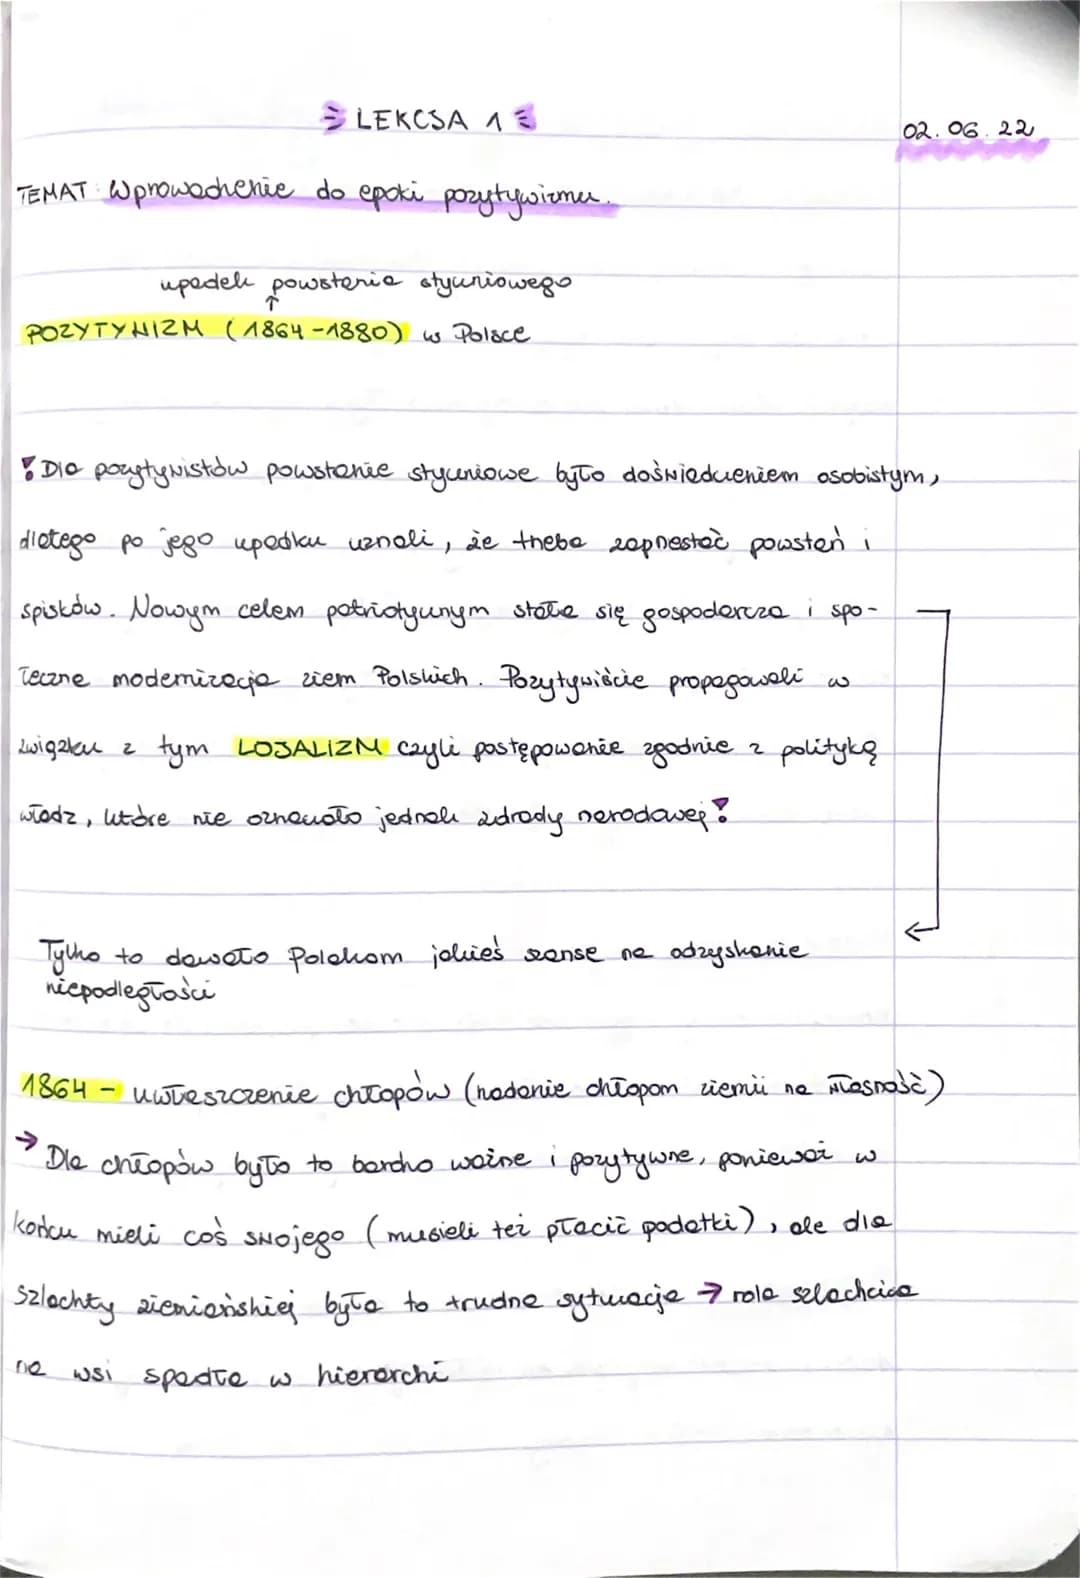 LEKCJA 1
02.06.22
TEMAT: Wprowadzenie do epoki pozytywizmu.
upadek powstania styczniowego
↑
POZYTYWIZM (1864-1880) w Polsce
! Dla pozytywistów powstanie styczniowe było doświadczeniem osobistym,
dlatego po jego upadku uznali, że trzeba zaprzestać powstań i
spisków. Nowym celem patriotycznym stała się gospodarcza i spo-
łeczna modernizacja ziem Polskich. Pozytywiście propagowali w
związku z tym LOJALIZM czyli postępowanie zgodnie z polityką
władz, które nie oznaczało jednak zdrady narodowej!
Tylko to dawało Polakom jakieś szanse na odzyskanie
niepodległości
1864 - uwłaszczenie chłopów (nadanie chłopom ziemii na własność)
→ Dla chłopów było to bardzo ważne i pozytywne, ponieważ w
końcu mieli coś swojego (musieli też płacić podatki), ale dla
szlachty ziemiańskiej była to trudna sytuacja → rola szlachcica
na wsi spadła w hierarchi